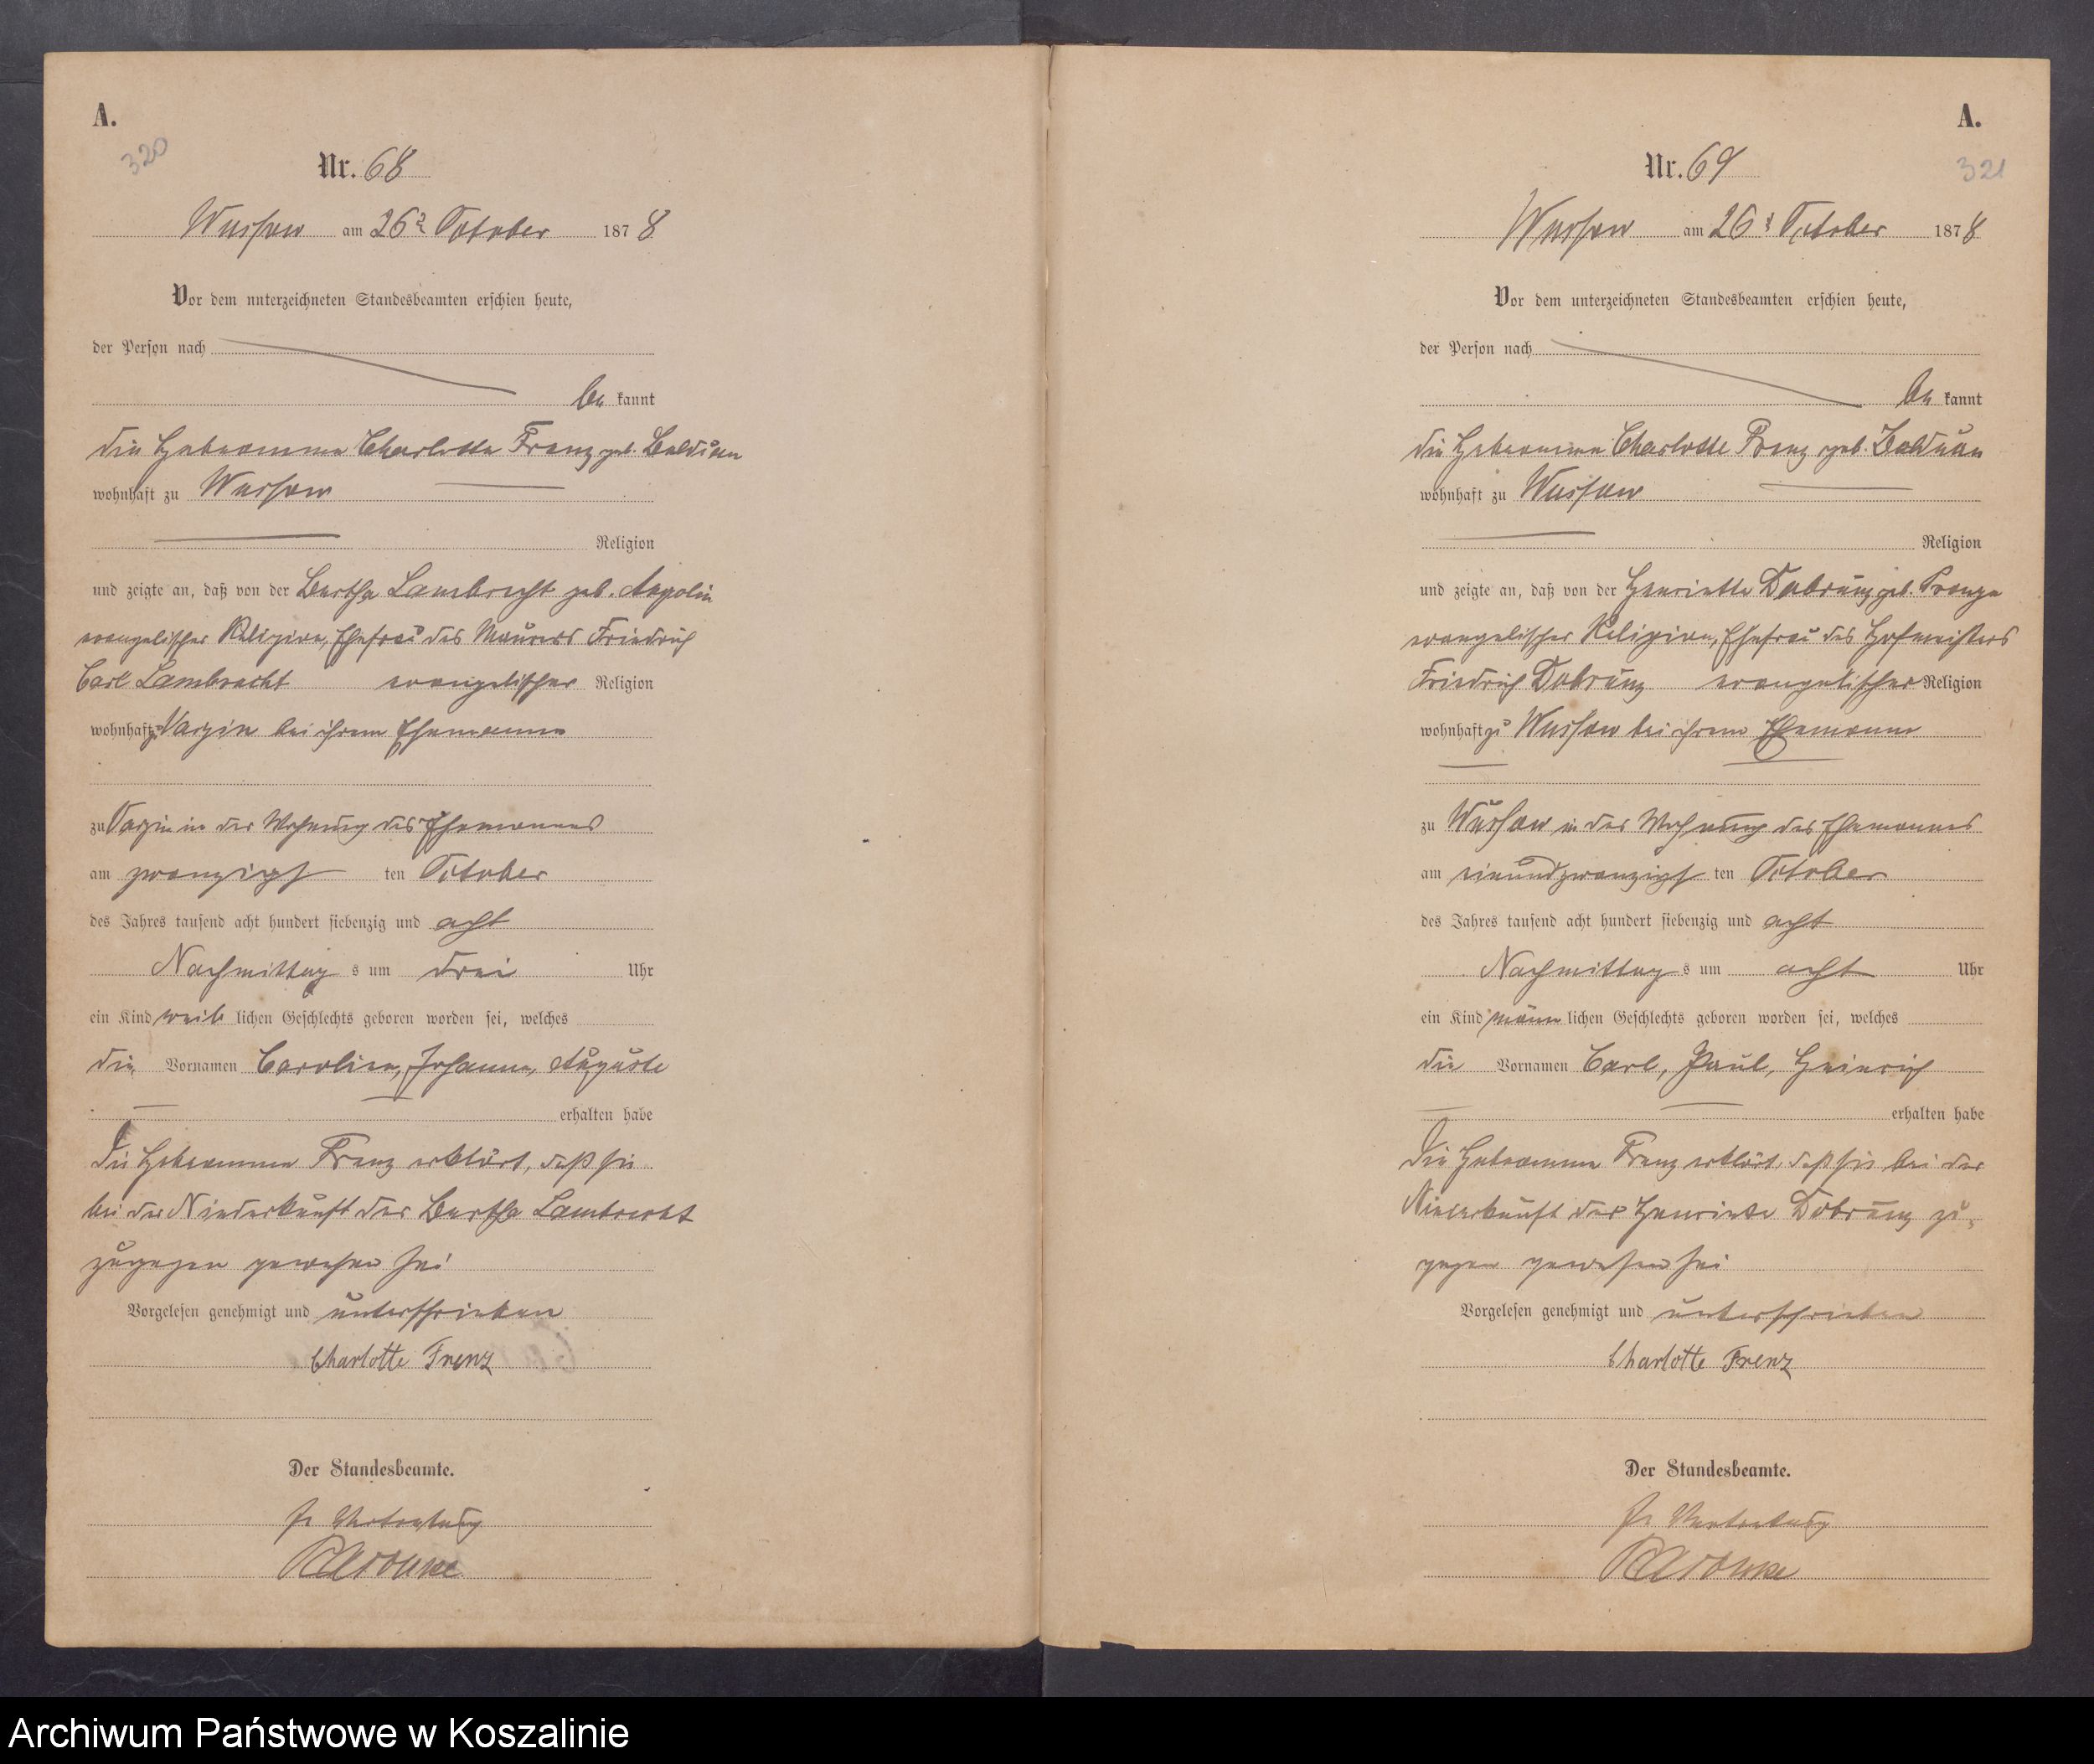 A.
320
Nr. 68
Wussow am 26t October 1878
Vor dem unterzeichneten Standesbeamten erschien heute,
der Person nach
be kannt
die Hebeamme Charlotte Frenz geb. Balduan
wohnhaft zu Wussow
Religion
und zeigte an, daß von der Bertha Lambrecht geb.
evangelischer Religion, Ehefrau des Maurers Friedrich
Carl Lambrecht evangelischer Religion
wohnhaft zu Varzin bei ihrem Ehemanne
zu Varzin in der Wohnung des Ehemannes
am zwanzigst ten October
des Jahres tausend acht hundert siebenzig und acht
Nachmittag s um drei Uhr
ein Kind weib lichen Geschlechts geboren worden sei, welches
die Vornamen Caroline, Johanne, Auguste
erhalten habe
Die Hebeamme Frenz erklärt, daß sie
bei der Niederkunft der Bertha Lambrecht
zugegen gewesen sei
Vorgelesen genehmigt und unterschrieben
Charlotte Frenz
Der Standesbeamte.
In Vertretung
A.
321
Nr. 69
Wussow am 26t October 1878
Vor dem unterzeichneten Standesbeamten erschien heute,
der Person nach
be kannt
die Hebeamme Charlotte Frenz geb. Balduan
wohnhaft zu Wussow
Religion
und zeigte an, daß von der Henriette Dobrunz geb.
evangelischer Religion, Ehefrau des Hofmeisters
Friedrich Dobrunz evangelischer Religion
wohnhaft zu Wussow bei ihrem Ehemann
zu Wussow in der Wohnung des Ehemannes
am einundzwanzigst ten October
des Jahres tausend acht hundert siebenzig und acht
Nachmittag s um acht Uhr
ein Kind männ lichen Geschlechts geboren worden sei, welches
die Vornamen Carl, Paul, Heinrich
erhalten habe
Die Hebeamme Frenz erklärt, daß sie bei der
Niederkunft der Henriette Dobrunz zu-
gegen gewesen sei
Vorgelesen genehmigt und unterschrieben
Charlotte Frenz
Der Standesbeamte.
In Vertretung
Archiwum Państwowe w Koszalinie